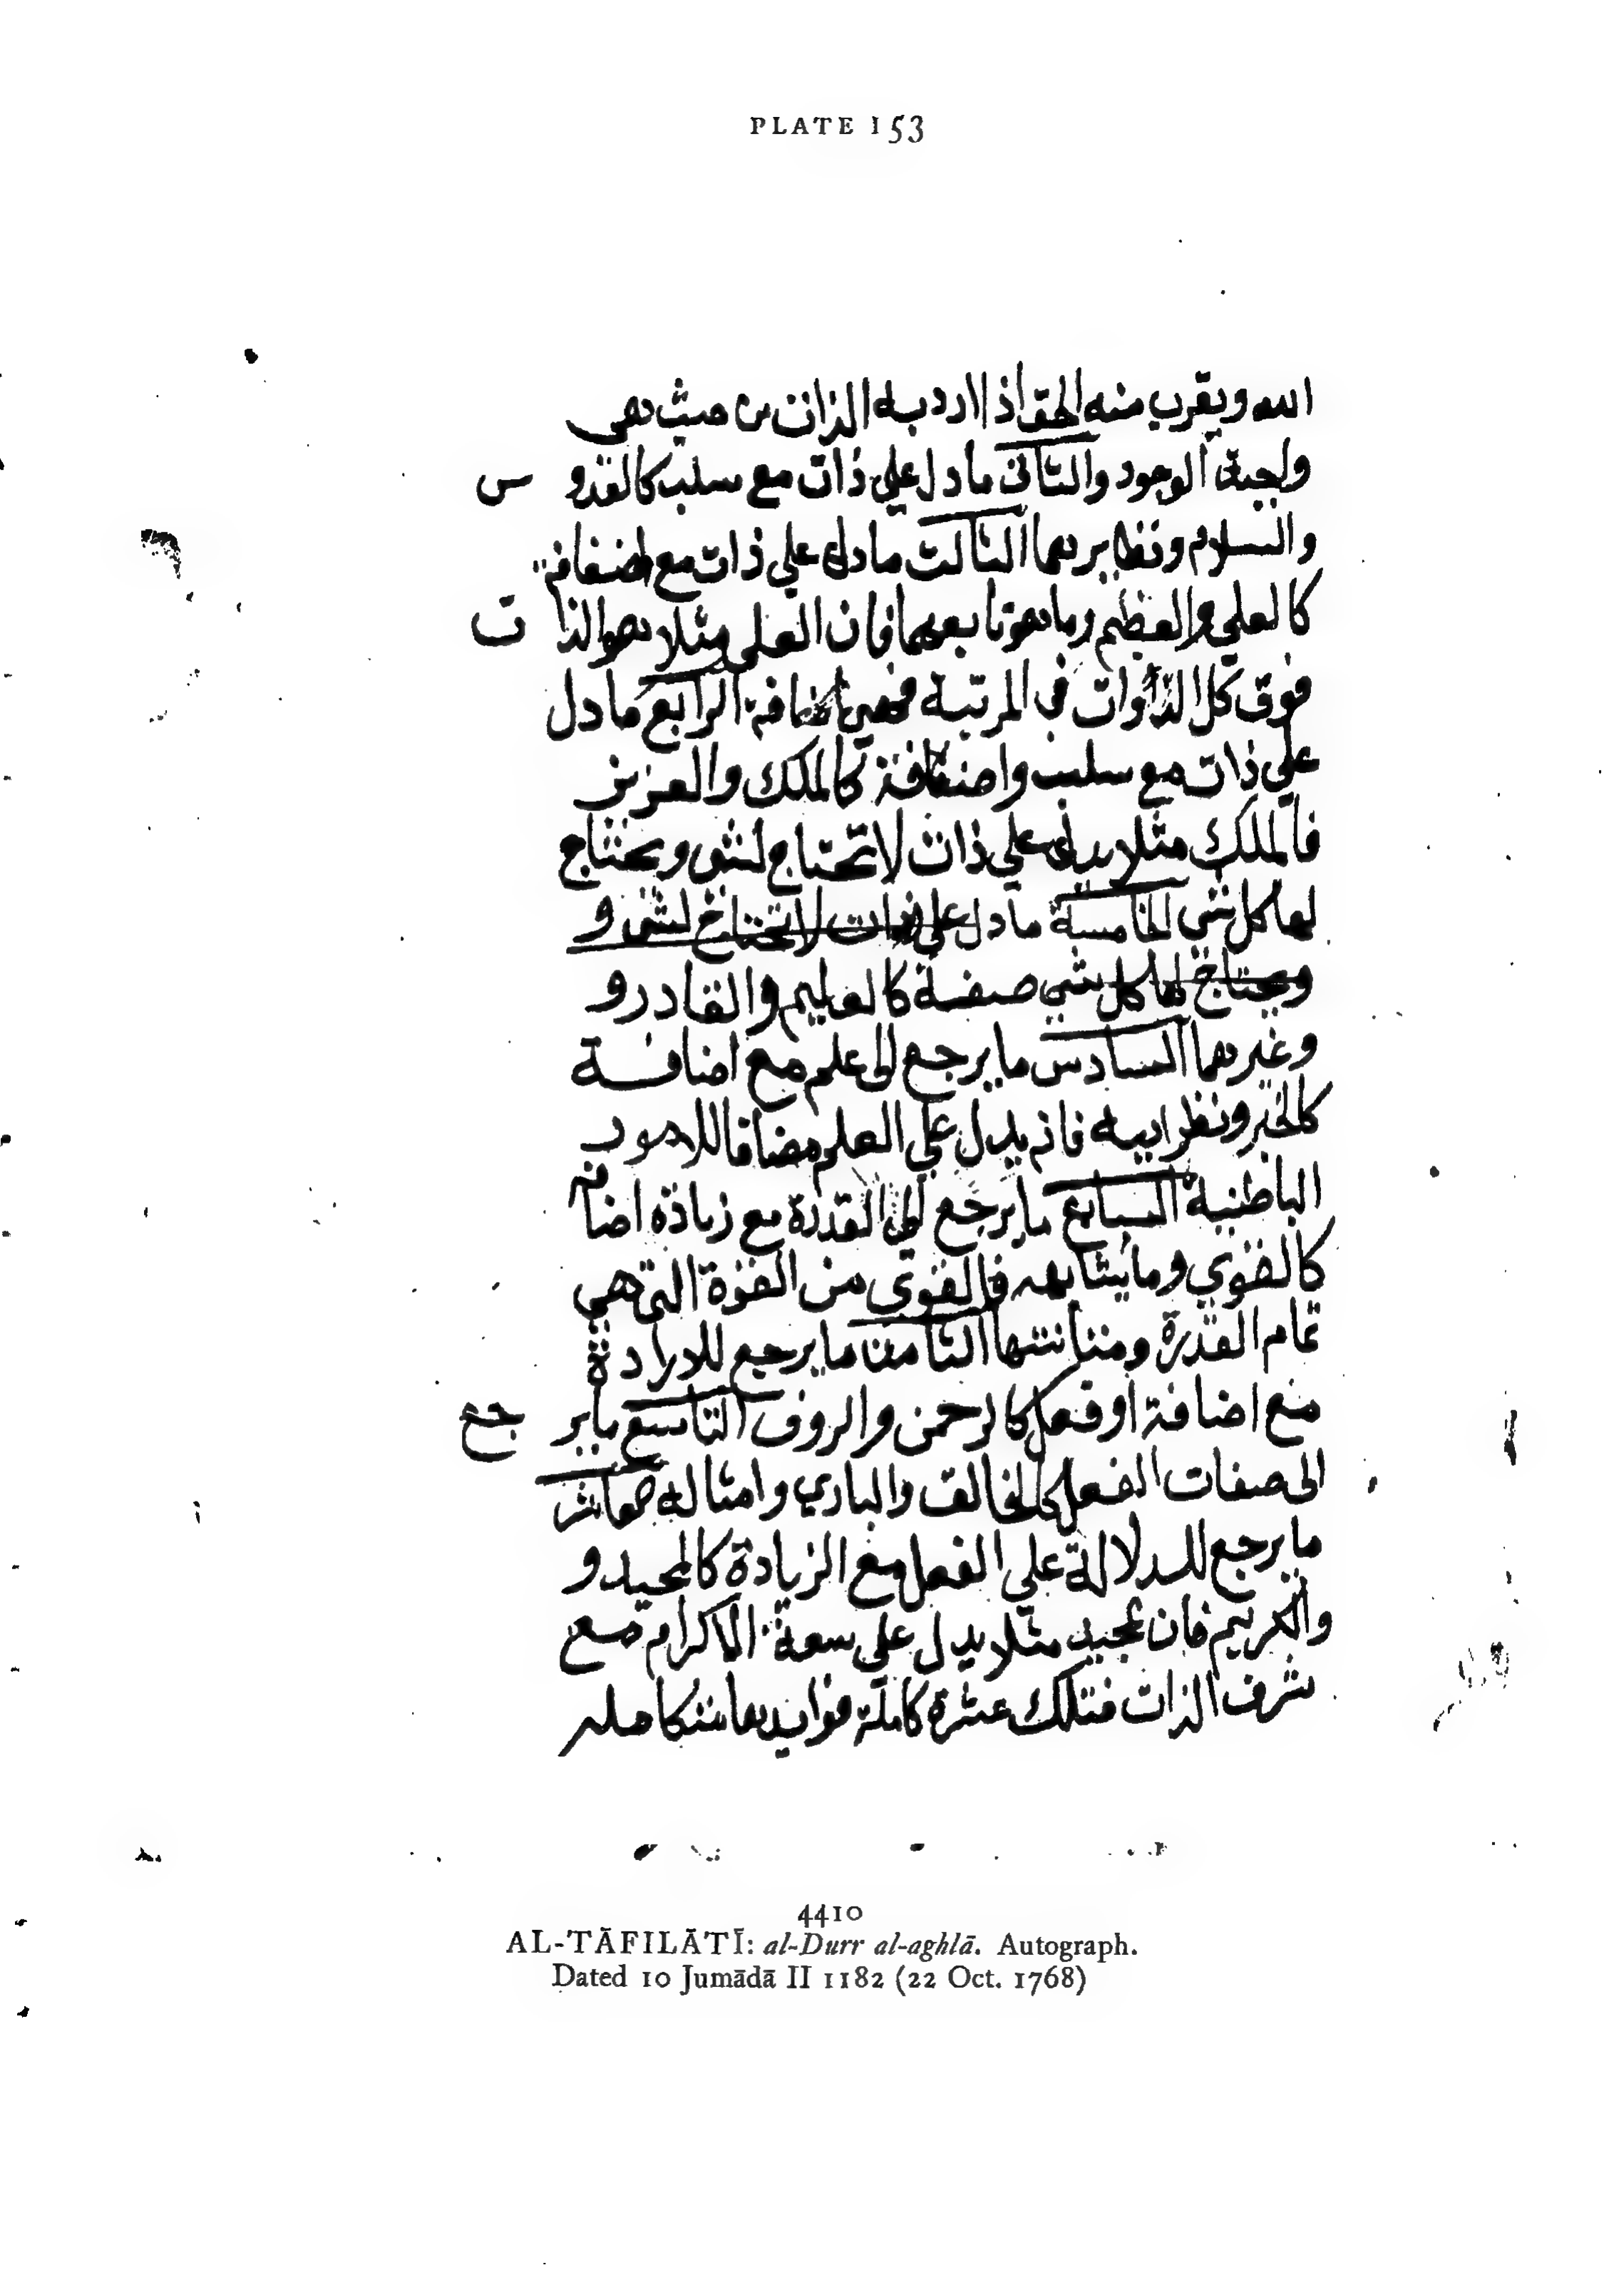 PLATE 153
الله ويقرب منه الحق اذا اريد به الذات من حيث هي
واجبة الوجود والثاني ما دل علي ذات مع سلب كالقدو س
والسلام ونظايرهما الثالث ما دل علي ذات مع اضافة
كالعلي والعظيم وما هو تابعهما فان العلي مثلا هو الذا ت
فوق كل الذوات في المرتبة فهي اضافة الرابع ما دل
علي ذات مع سلب واضافة كالملك والعزيز
فالملك مثلا يدل علي ذات لا تحتاج لشي ويحتاج
لها كل شي الخامسة ما دل علي ذات لا تحتاج لشي و
ويحتاج لها كل شي صفة كالعليم والقادر و
وغيرهما السادس ما يرجع الي علم مع اضافة
كالخبير ونظراييه فانه يدل علي العلم مضافا للامور
الباطنية السابع ما يرجع الي القدرة مع زيادة اضافة
كالقوي وما يشابهه فالقوي من القوة التي هي
تمام القدرة ومتانتها الثامن ما يرجع للارادة
مع اضافة او فعل كالرحمن والروف التاسع ما ير جع
الي صفات الفعل كالخالق والباري وامثاله عاشر
ما يرجع للدلالة علي الفعل مع الزيادة كالمجيد و
والكريم فان مجيد مثلا يدل علي سعة الاكرام مع
شرف الذات فتلك عشرة كاملة فوايدها متكاملة
4410
AL-TĀFILĀTĪ: al-Durr al-aghlā. Autograph.
Dated 10 Jumādā II 1182 (22 Oct. 1768)